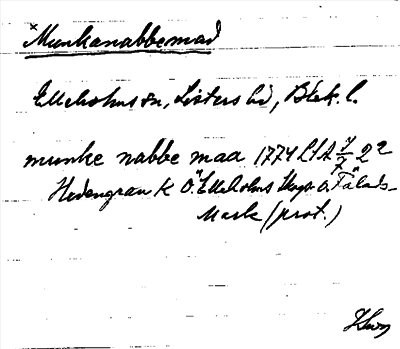 ×Munkanabbemad
Elleholms sn, Listers hd, Blek. l.
munke nabbe maa 1774 LSA 7/7 22
Hedengran K Ö. Elleholms Kungs o. Fälads-
Mark (prot.)